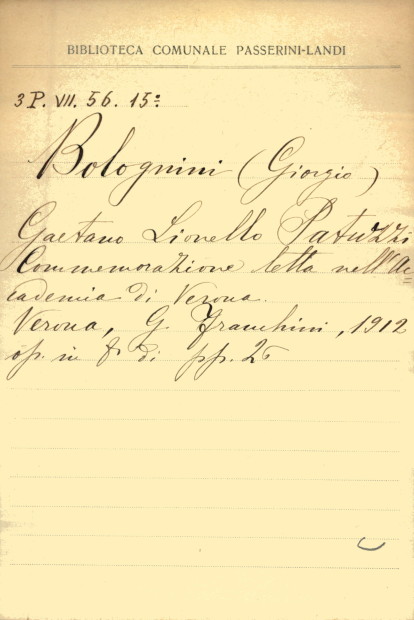 BIBLIOTECA COMUNALE PASSERINI-LANDI
3 P. VII. 56. 15º
Bolognini (Giorgio)
Gaetano Lionello Patuzzi
Commemorazione letta nell'Ac=
cademia di Verona.
Verona, G. Franchini, 1912
op. in 8 di pp. 25